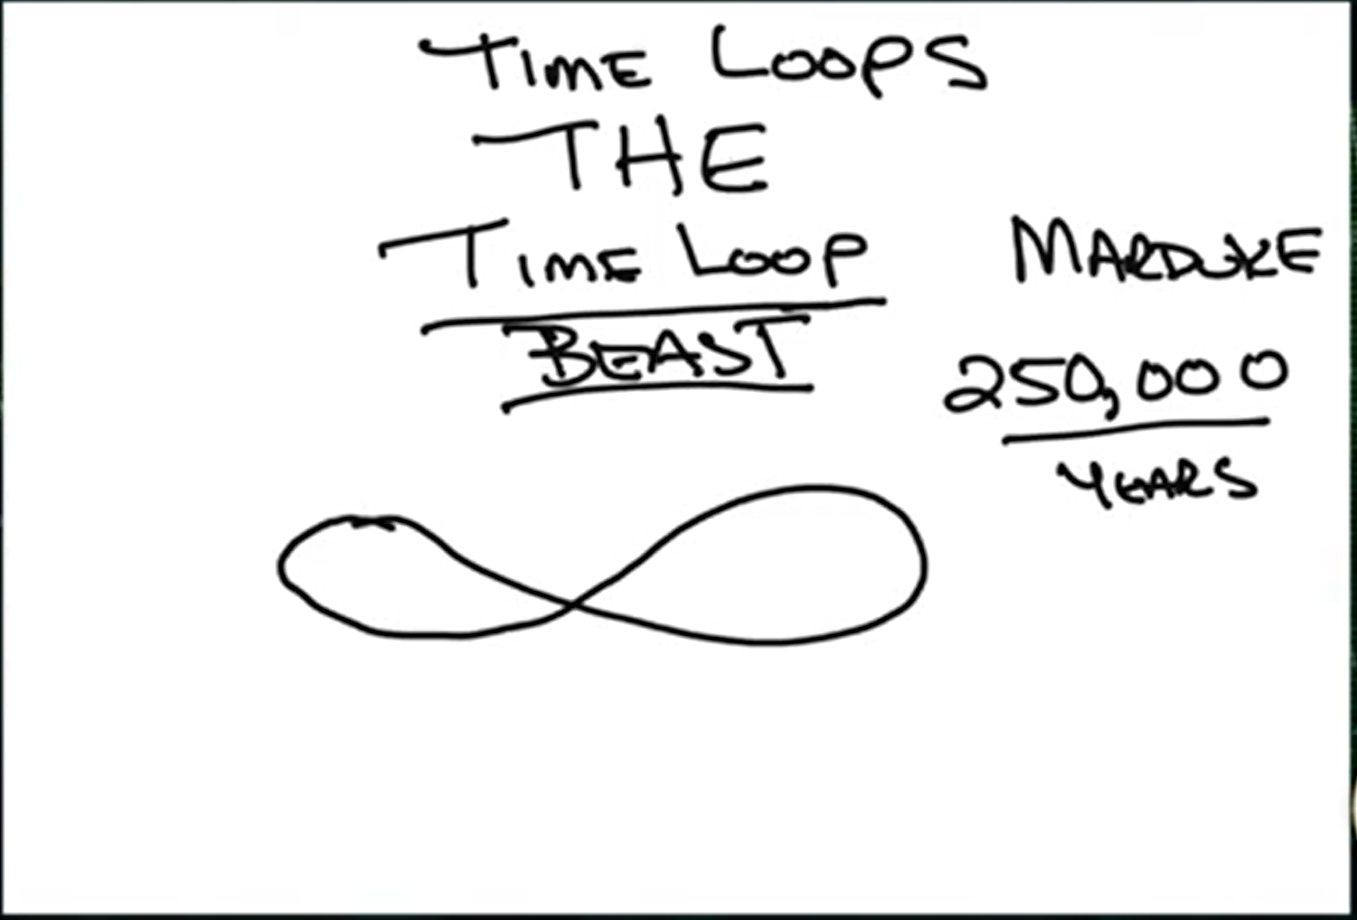 TIME LOOPS
THE
TIME LOOP
BEAST
MARDUKE
250,000
YEARS